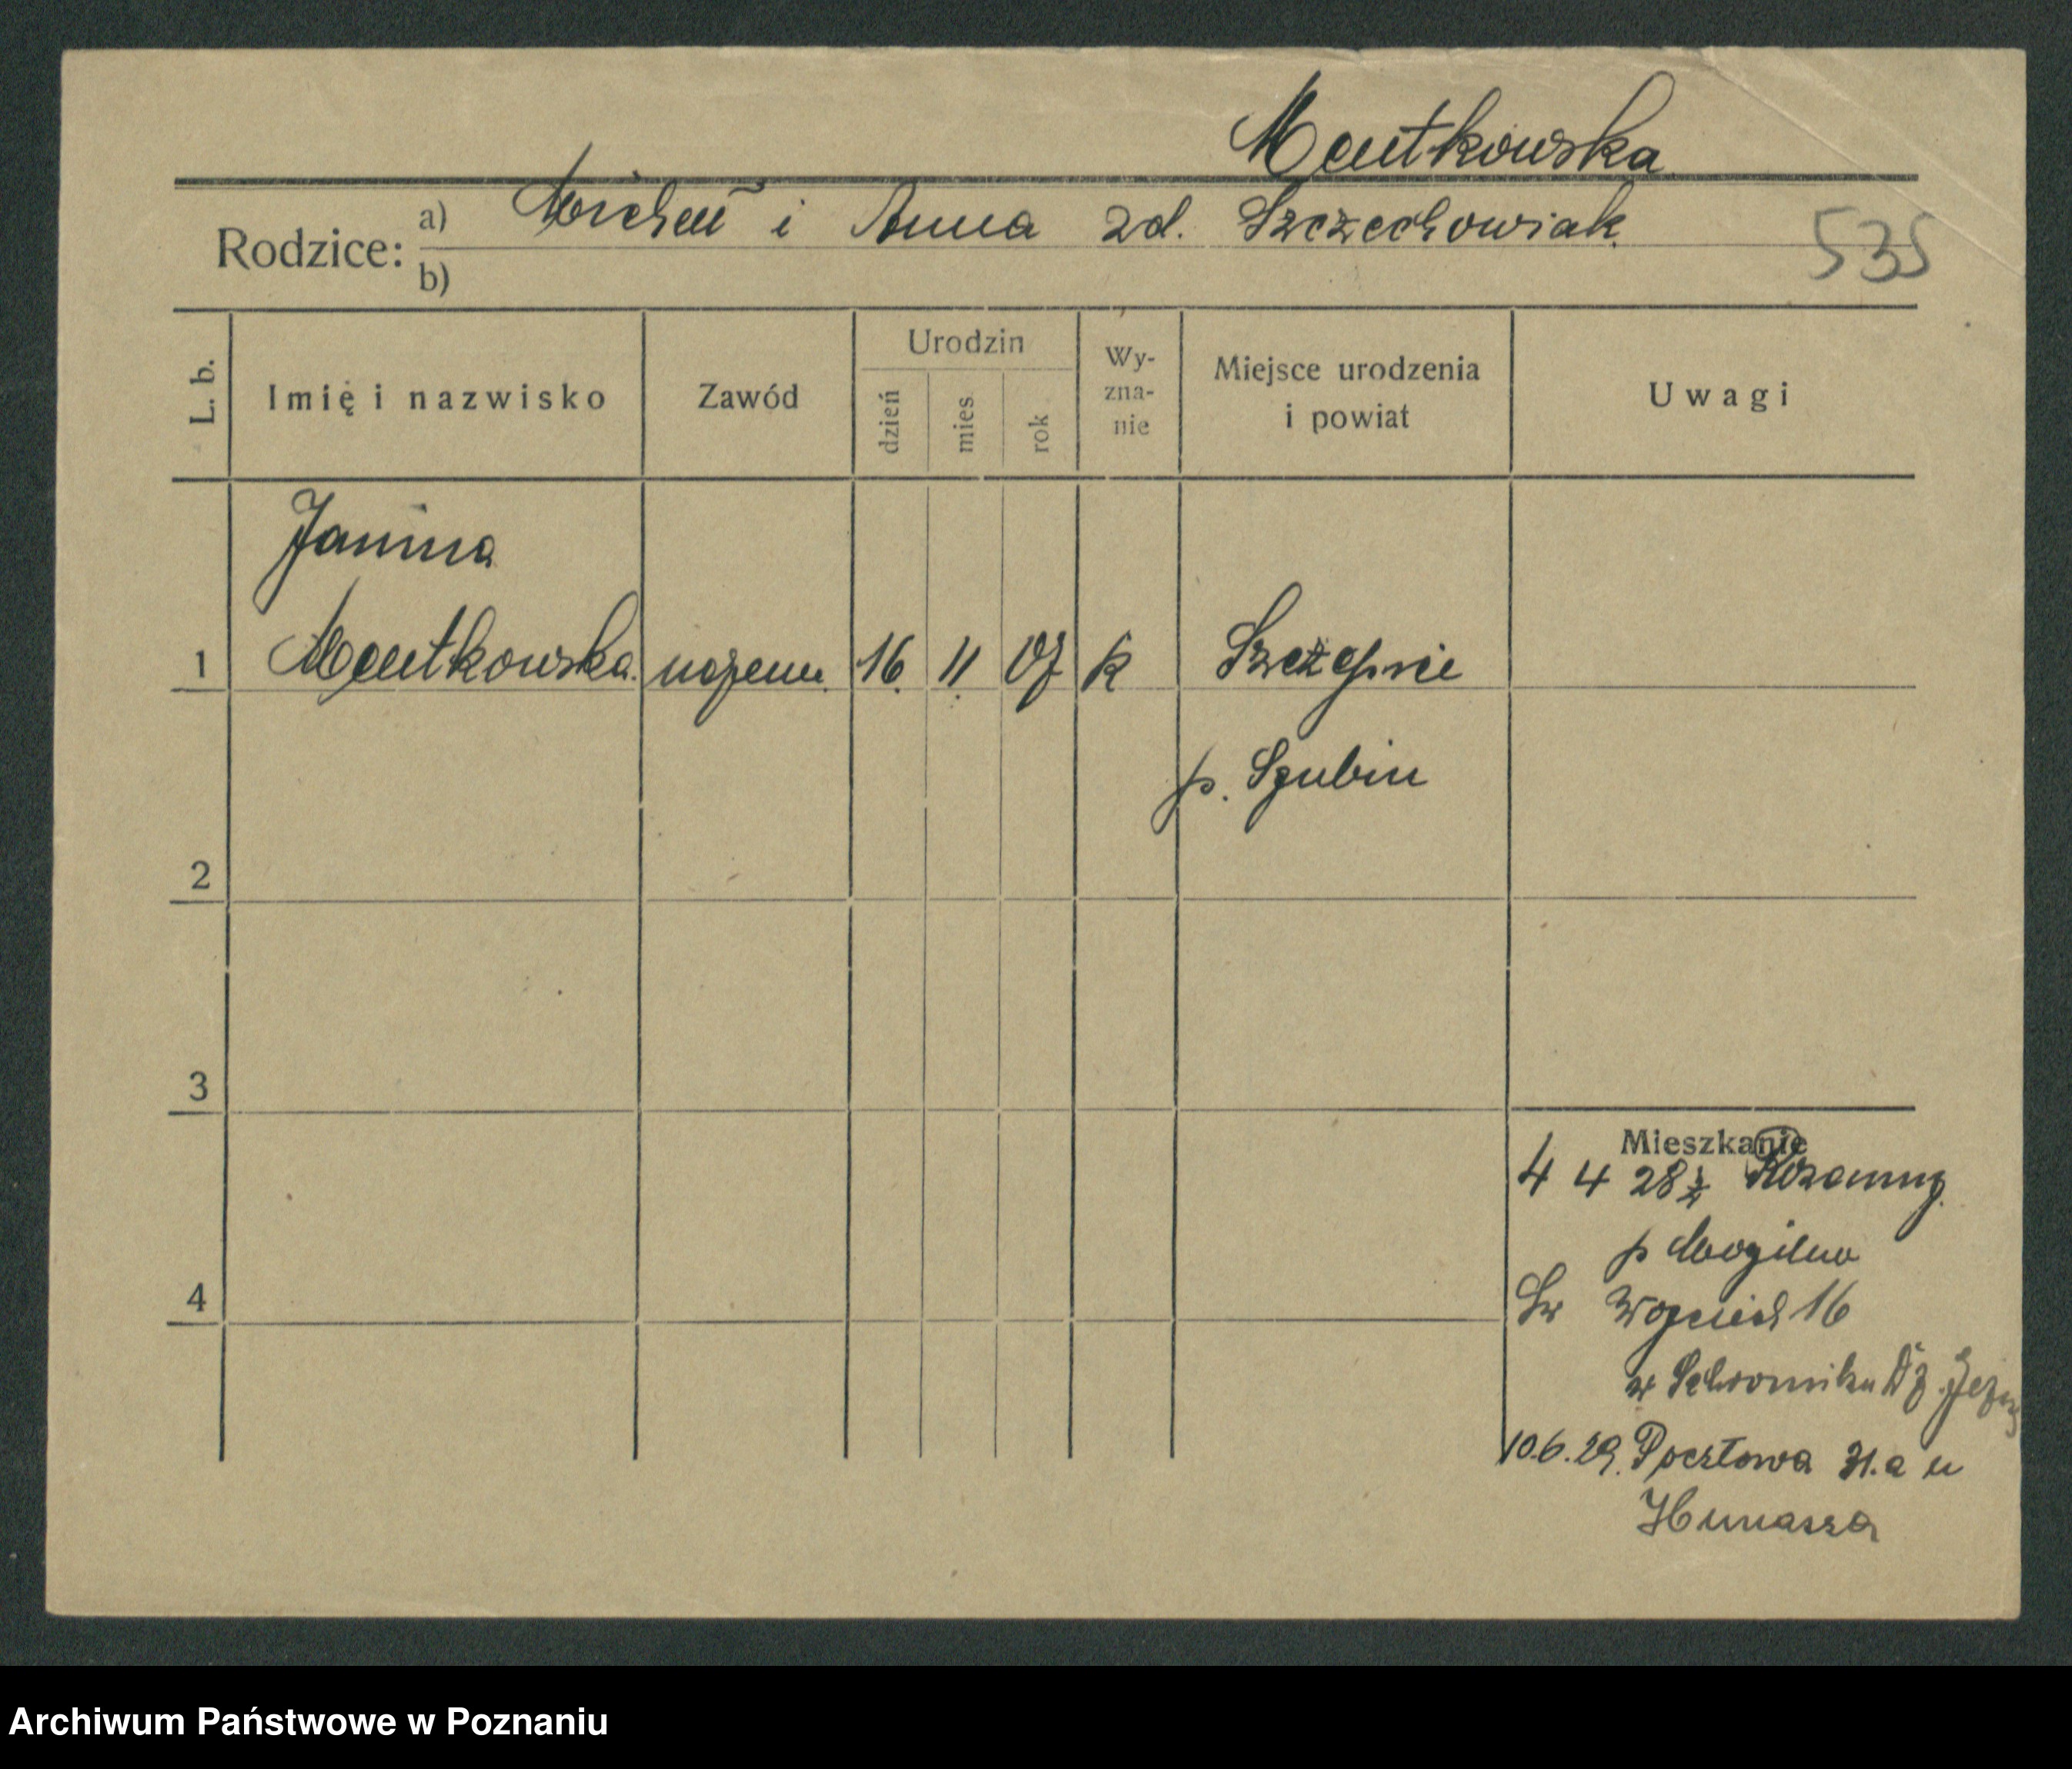 Mantkowska
Rodzice: a) Michał i Anna zd. Szczechowiak
b)
535
L. b.
Imię i nazwisko
Zawód
Urodzin
dzień
mies
rok
Wy-
zna-
nie
Miejsce urodzenia
i powiat
Uwagi
Janina
1 Mantkowska 16. 11. 07 k Szczepice
p. Szubin
2
3
4
Mieszkanie
4 4 28 z
p Mogilno
Św Wojciech 16
w Schronisku Dz. Jezus
10.6.29. Pocztowa 31.a u
Archiwum Państwowe w Poznaniu